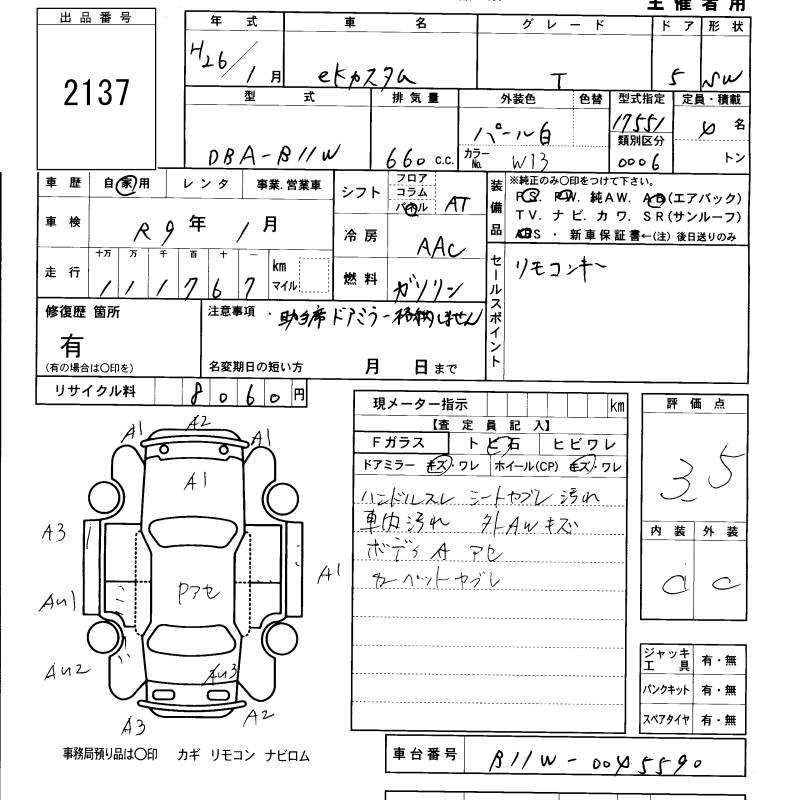 主催者用
出品番号
2137
年式 車名 グレード ドア 形状
H26/1月 eKカスタム T 5 SW
型式 排気量 外装色 色替 型式指定 定員・積載
DBA-B11W 660 c.c. パール白 17551 4名
カラーNo. W13 類別区分 0006 トン
車歴 自家用 レンタ 事業.営業車
シフト フロア コラム パネル AT
装備品 ※純正のみ〇印をつけて下さい。
P.S. P.W. 純AW. AB(エアバック)
TV. ナビ. カワ. SR(サンルーフ)
ABS ・ 新車保証書←(注) 後日送りのみ
車検 R9年 1月
冷房 AAC
走行 十万 万 千 百 十 一
111767 km マイル
燃料 ガソリン
セールスポイント リモコンキー
修復歴 箇所
有
(有の場合は〇印を)
注意事項 ・助手席ドアミラー格納しません
名変期日の短い方 月 日まで
リサイクル料 8060円
現メーター指示 km
【査定員記入】
Fガラス トビ石 ヒビワレ
ドアミラー キズ・ワレ ホイール(CP) キズ・ワレ
ハンドルスレ シートヤブレ 汚れ
車内汚れ 外AWキズ
ボディA アセ
カーペットヤブレ
評価点
3.5
内装 外装
C C
A1 A2 A1
A1
A3
A1
AU1
Pアセ
AU2
AU3
A3 A2
ジャッキ工具 有・無
パンクキット 有・無
スペアタイヤ 有・無
事務局預り品は〇印 カギ リモコン ナビロム
車台番号 B11W-0045590